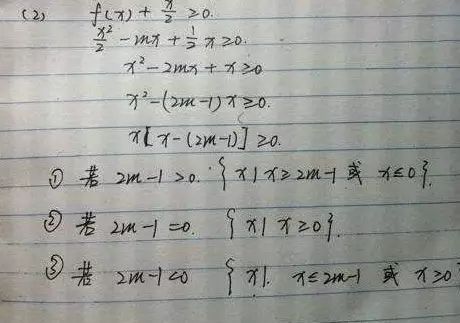 (2) f(x) + x/2 ≥0.
x²/2 - mx + 1/2 x ≥0.
x² - 2mx + x ≥0
x² - (2m-1) x ≥0.
x[x - (2m-1)] ≥0.
① 若 2m-1>0. {x|x≥2m-1 或 x≤0}.
② 若 2m-1=0. {x| x≥0}.
③ 若 2m-1<0 {x|. x≤2m-1 或 x≥0